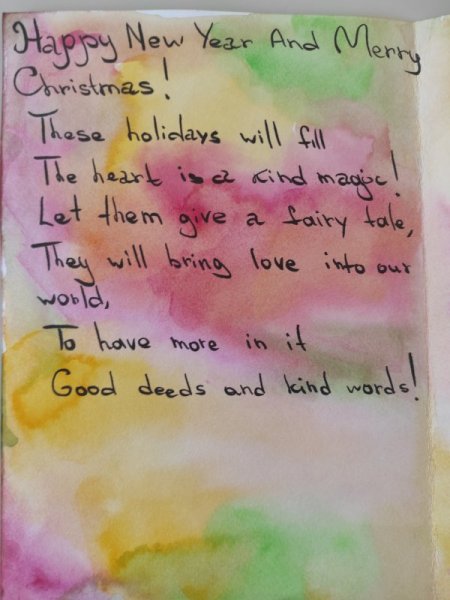 Happy New Year And Merry
Christmas!
These holidays will fill
The heart is a kind magic!
Let them give a fairy tale,
They will bring love into our
world,
To have more in it
Good deeds and kind words!